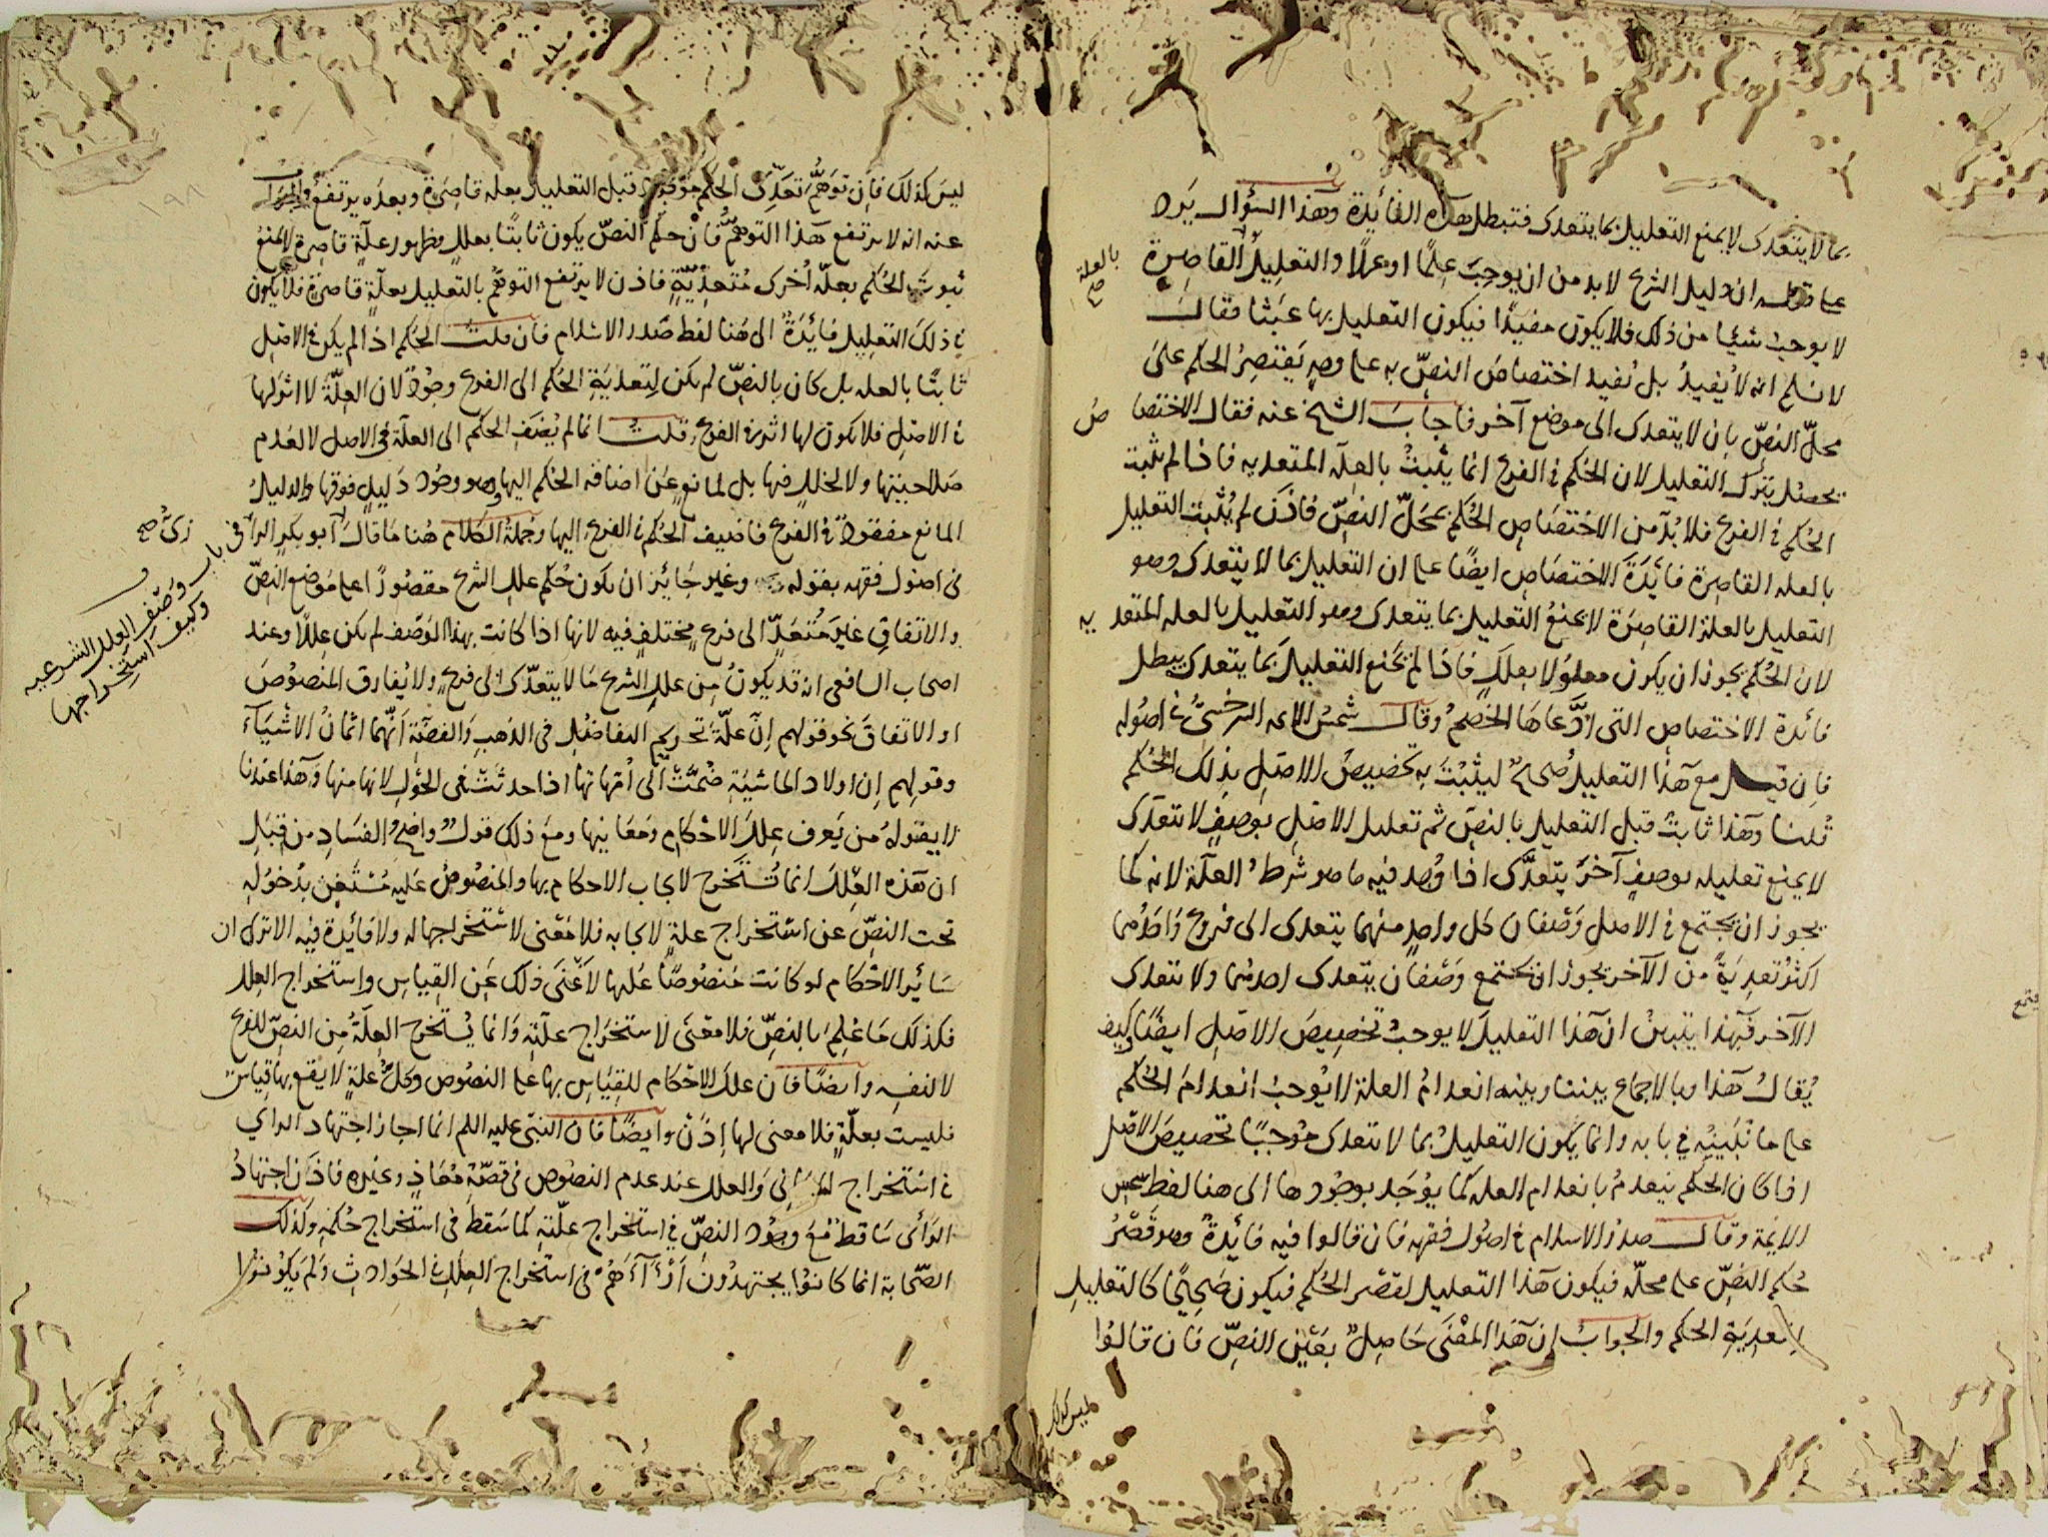 بما لا يتعدى لا يمنع التعليل بما يتعدى فتبطل هذه الفائدة وهذا السؤال يرد
على قوله ان دليل الشرع لا بد من ان يوجب علمًا او عملًا والتعليل القاصرة
بالعلة صح
لا يوجب شيئا من ذلك فلا يكون مفيدًا فيكون التعليل بها عبثا فقال
لا نسلم انه لا يُفيد بل يُفيد اختصاص النصّ به على وجه يقتصر الحكم على
محلّ النصّ بان لا يتعدى الى موضع آخر فاجاب الشيخ عنه فقال الاختصاص
يحصل بترك التعليل لان الحُكم في الفرع انما يثبتُ بالعلّة المتعديه فاذا لم تثبت
الحُكم في الفرع فلا بُدّ من الاختصاص الحُكم بمحلّ النصّ فاذن لم يُثبت التعليل
بالعله القاصرة فائدة الاختصاص ايضًا على ان التعليل بما لا يتعدى وهو
التعليل بالعلة القاصرة لا يمنعُ التعليل بما يتعدى وهو التعليل بالعله المتعديه
لان الحُكم يجوز ان يكون معلولا بعللٍ فاذا لم يمنع التعليل بما يتعدى يبطل
فائدة الاختصاص التى ادّعاها الخصم وقال شمس الايمه السرخسىّ في اصوله
فان قيل مع هذا التعليل صحيحٌ ليثبت به تخصيصُ الاصل بذلك الحُكم
قُلنا وهذا ثابتٌ قبل التعليل بالنصّ ثم تعليل الاصل بوصفٍ لا يتعدى
لا يمنع تعليله بوصفٍ آخر يتعدّى اذا وُجد فيه ما هو شرطُ العلّة لانه كما
يجوز ان يجتمع في الاصل وصفان كل واحدٍ منهما يتعدى الى فروع واحدُهما
اكثرُ تعديةً من الآخر يجوز ان يجتمع وصفان يتعدى احدهما ولا يتعدى
الآخر فبهذا يتبين ان هذا التعليل لا يوجبُ تخصيص الاصل ايضًا وكيف
يُقالُ هذا وبالاجماع بيننا وبينه انعدامُ العلة لا يوجبُ انعدام الحُكم
على ما نُبيّنه في بابه وانما يكون التعليلُ بما لا يتعدى موجبًا تخصيص الاصل
اذا كان الحكم ينعدمُ بانعدام العله كما يوجد بوجُودها الى هنا لفظ شمس
الائمة وقال صدر الاسلام في اصُول فقهه فان قالوا فيه فائدةٌ وهو قصْرُ
حُكم النصّ على محلّه فيكون هذا التعليل لقصْر الحُكم فيكون صحيحًا كالتعليل
لتعدية الحكم والجوابُ ان هذا المعْنَى حاصلٌ بعَيْن النصّ فان قالوا
ليس كذلك
ليس كذلك فان توهُّم تعدّى الحُكم موجودٌ قبل التعليل بعله قاصرة وبعده يرتفع والجواب
عنه انه لا يرتفع هذا التوهُّم فانّ حكم النصّ يكون ثابتًا بعللٍ وظهور علّةٍ قاصرة لا يمنع
ثبوت الحُكم بعلّة أخرى مُتعدّيةٍ فاذن لا يرتفع التوهّم بالتعليل بعلّةٍ قاصرة فلا يكون
في ذلك التعليل فائدةٌ الى هُنا لفظ صَدر الاسلام فان قلتَ الحُكم اذا لم يكن في الاصل
ثابتًا بالعله بل كان بالنصّ لم يكن لتعدية الحُكم الى الفرع وجُودٌ لان العِلّة لا اثر لها
في الاصْل فلا يكون لها اثر في الفرع قلتُ انما لم يُضَف الحكم الى العلّة في الاصل لا لعدم
صلاحيتها ولا لخللٍ فيها بل لمانع عن اضافة الحكم اليها وهو وجُود دليلٍ فوقها والدليل
المانع مفقودٌ في الفرع فاضيف الحُكم في الفرع اليها وجملةُ الكلام هُنا ما قال ابو بكر الرازى
في باب وصف العلل الشرعيه وكيف استخراجها صح
في اصُول فقهه بقوله وغير جائز ان يكون حُكم علل الشرع مقصُورًا على موضع النصّ
والاتفاق غير مُتعدٍّ الى فرعٍ مختلفٍ فيه لانها اذا كانت بهذا الوصف لم تكن عللًا وعند
اصحاب الشافعى انه قد يكونُ من علل الشرع ما لا يتعدّى الى فرعٍ ولا يُفارق المنصُوصَ
او الاتفاق نحو قولهم اِنّ علّة تحريم التفاضُل فى الذهب والفضّة أنّهما اثمانُ الاشياء
وقولهم ان اولاد الماشية ضُمّت الى امّهاتها اذا حدثت فى الحول لانها منها وهذا عندنا
لا يقولهُ من يَعرف علل الاحْكام ومعانيها ومع ذلك قولٌ واضحُ الفسَادِ من قِبَل
ان هذه العِلَل انما تُستَخرج لايجاب الاحكام بها والمنصُوصُ عَليه مُسْتَغْنٍ بدُخوله
تحت النصّ عن استخراج علةٍ لايجابه فلا معْنى لاستخراجها له ولا فائدة فيه الا ترى ان
سَائر الاحْكام لو كانت منصُوصًا عليها لاغْنَى ذلك عن القياس واستخراج العلل
فكذلك ما عُلِم بالنصّ فلا معْنَى لاستخراج علّته وانما يُستخرج العلّةُ من النصّ للفرع
لا لنفسه وايضًا فان علل الاحْكام للقياس بها على النصُوص وكلّ علةٍ لا يقع بها قياسٌ
فليست بعلّةٍ فلا معنى لها إذَنْ وايضًا فان النبىّ عليه السلم انما اجاز اجتهاد الراي
في استخراج المعانى والعلل عند عدم النصُوص فى قصّة مُعاذٍ وغيره فاذن اجتهادُ
الرّأى سَاقط مع وجُود النصّ في استخراج علّته كما سَقط فى استخراج حُكمه وكذلك
الصّحابة انما كانوُا يجتهدُون آراءهُمْ فى استخراج العلل في الحوادث ولم يكونوُا